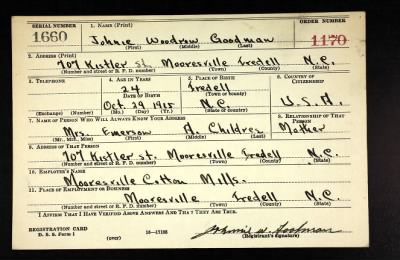 SERIAL NUMBER 1. NAME (Print) ORDER NUMBER
1660 Johnie Woodrow Goodman 1170
(First) (Middle) (Last)
2. ADDRESS (Print)
707 Kistler St. Mooresville Iredell N.C.
(Number and street or R. F. D. number) (Town) (County) (State)
3. TELEPHONE 4. AGE IN YEARS 5. PLACE OF BIRTH 6. COUNTRY OF CITIZENSHIP
24 Iredell
DATE OF BIRTH (Town or county)
Oct. 29 1915 N.C. U.S.A.
(Exchange) (Number) (Mo.) (Day) (Yr.) (State or country)
7. NAME OF PERSON WHO WILL ALWAYS KNOW YOUR ADDRESS 8. RELATIONSHIP OF THAT PERSON
Mrs. Emerson A. Childrez Mother
(Mr., Mrs., Miss) (First) (Middle) (Last)
9. ADDRESS OF THAT PERSON
707 Kistler St. Mooresville Iredell N.C.
(Number and street or R. F. D. number) (Town) (County) (State)
10. EMPLOYER'S NAME
Mooresville Cotton Mills.
11. PLACE OF EMPLOYMENT OR BUSINESS
Mooresville Iredell N.C.
(Number and street or R. F. D. number) (Town) (County) (State)
I AFFIRM THAT I HAVE VERIFIED ABOVE ANSWERS AND THAT THEY ARE TRUE.
REGISTRATION CARD Johnnie W. Goodman
D. S. S. Form 1 (over) 16—17105 (Registrant's signature)